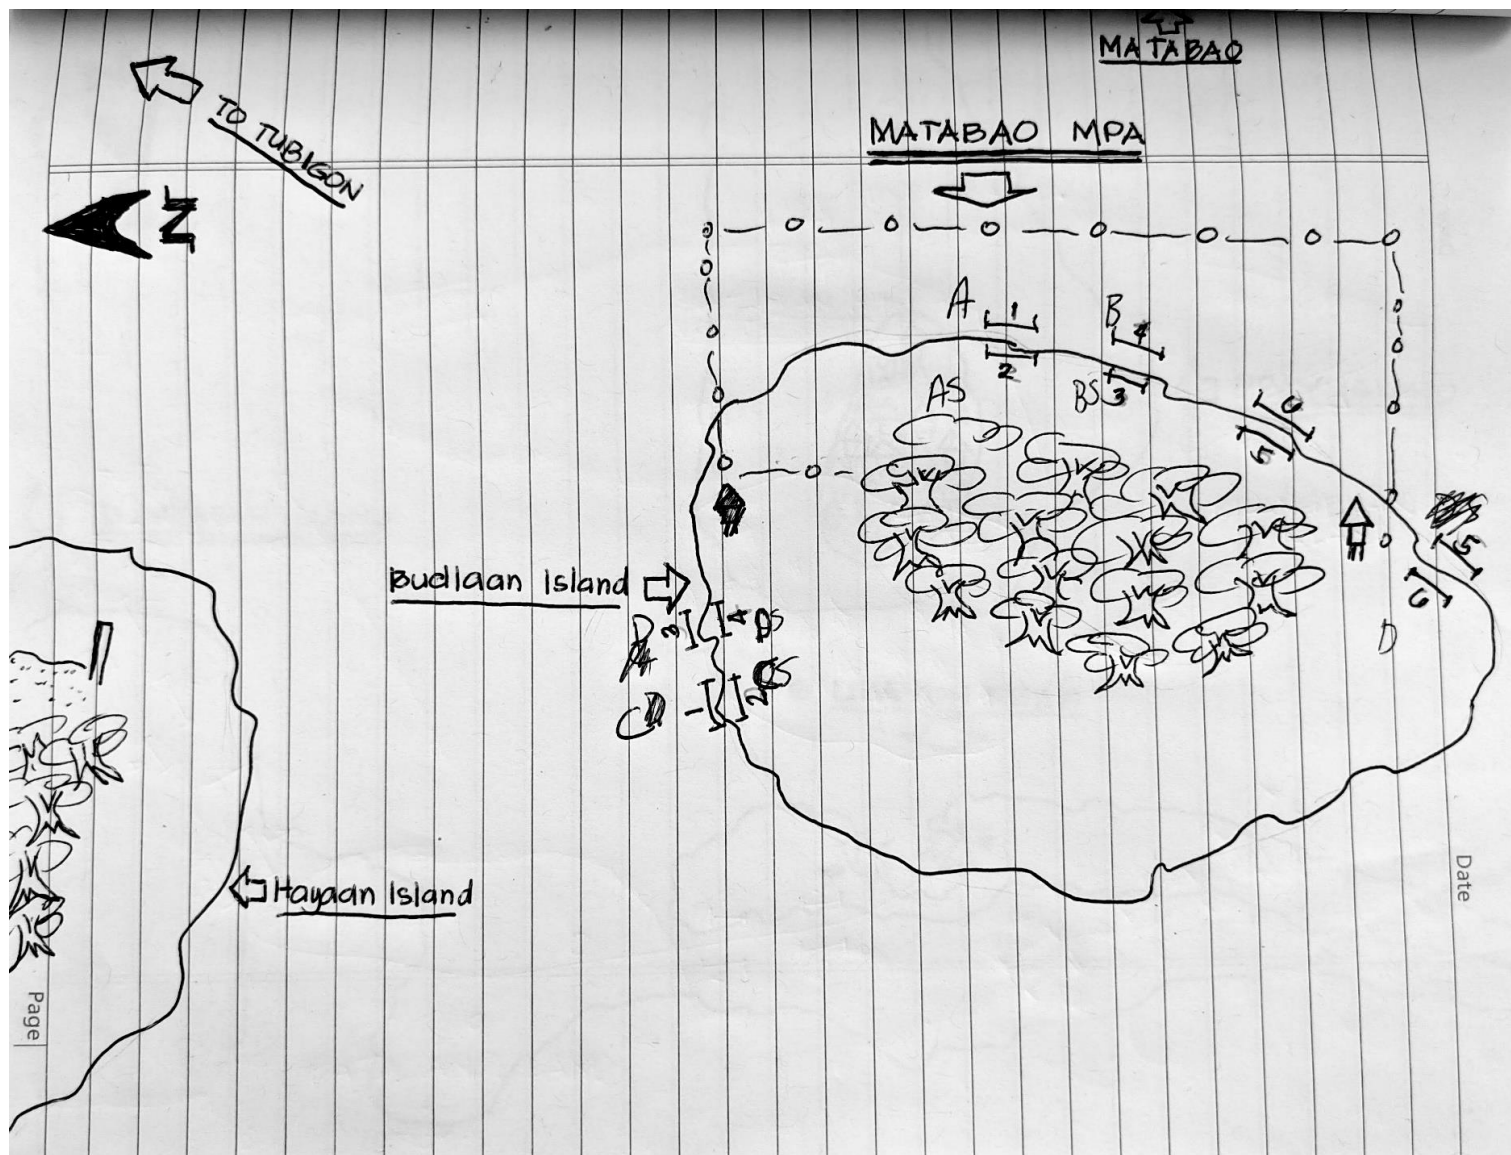 MATABAO
TO TUBIGON
MATABAO MPA
N
A
1
2
AS
B
4
BS
3
6
5
5
6
D
Budlaan Island
D
3
4
DS
C
1
2
CS
Hayaan Island
Date
Page